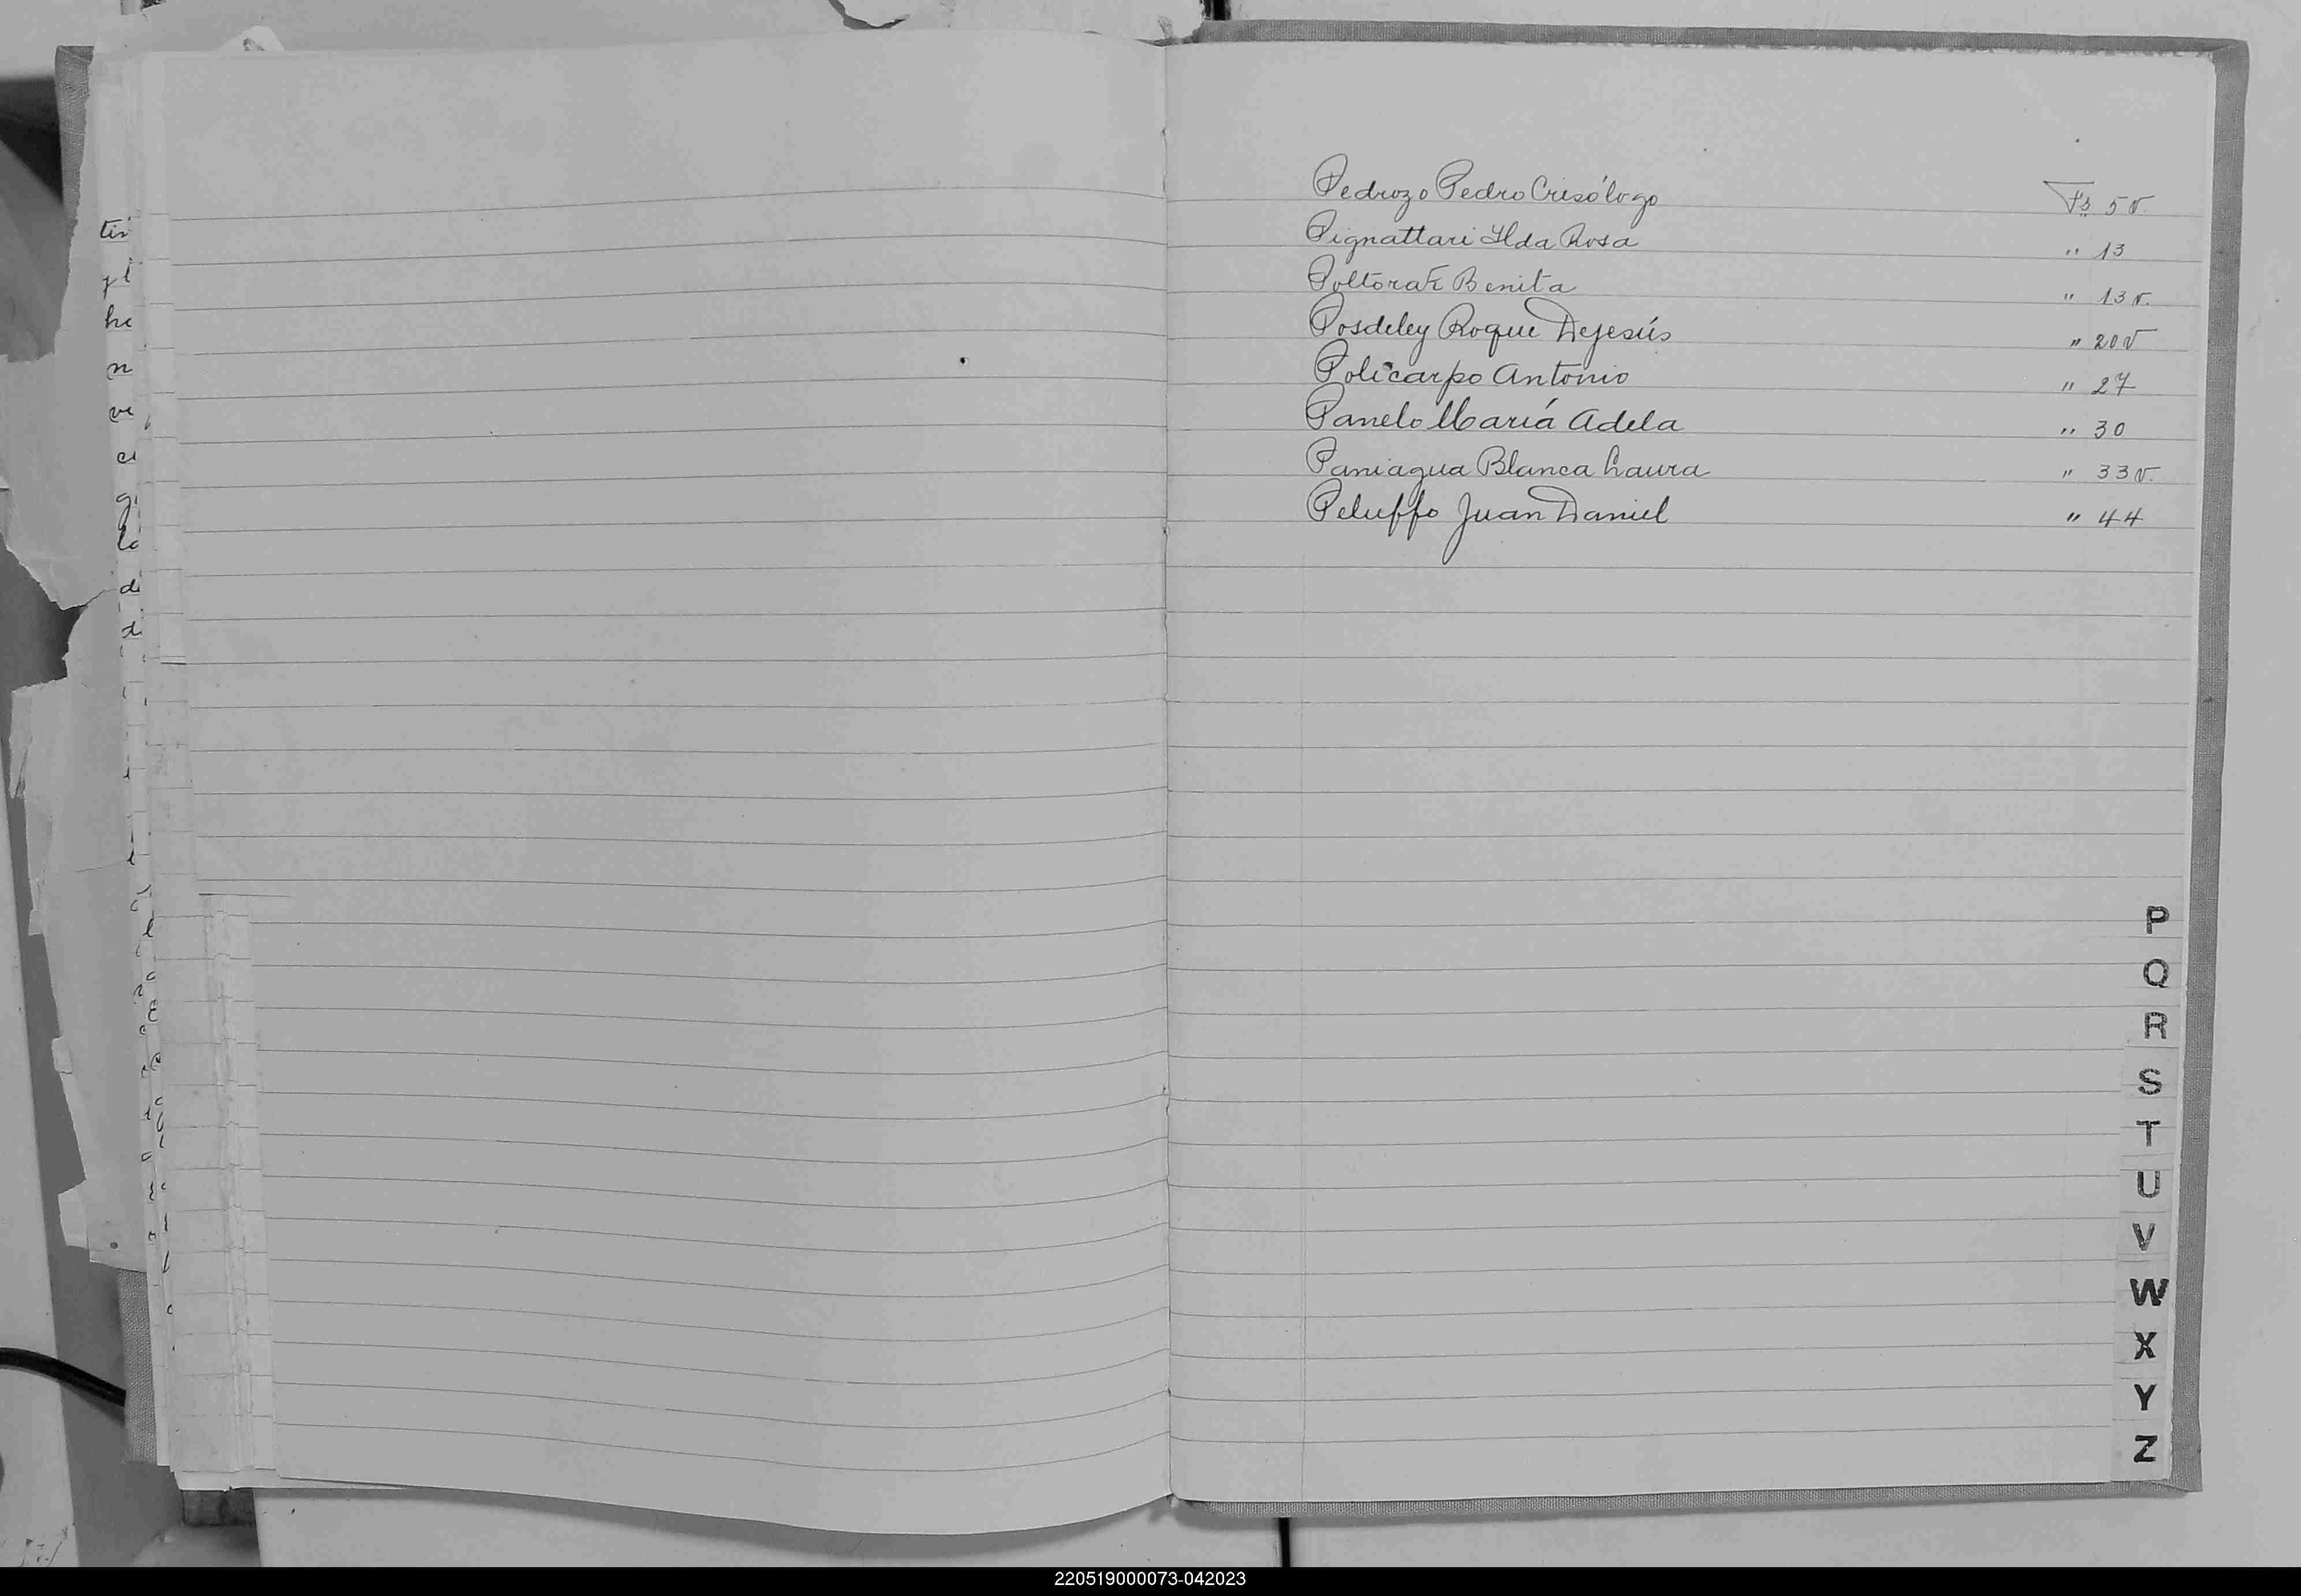 Pedrozo Pedro Crisólogo Fs 5 v.
Pignattari Ilda Rosa " 13
Poltorak Benita " 13 v.
Posdeley Roque Dejesús " 20 v
Policarpo Antonio " 27
Panelo María Adela " 30
Paniagua Blanca Laura " 33 v.
Peluffo Juan Daniel " 44
P
Q
R
S
T
U
V
W
X
Y
Z
220519000073-042023